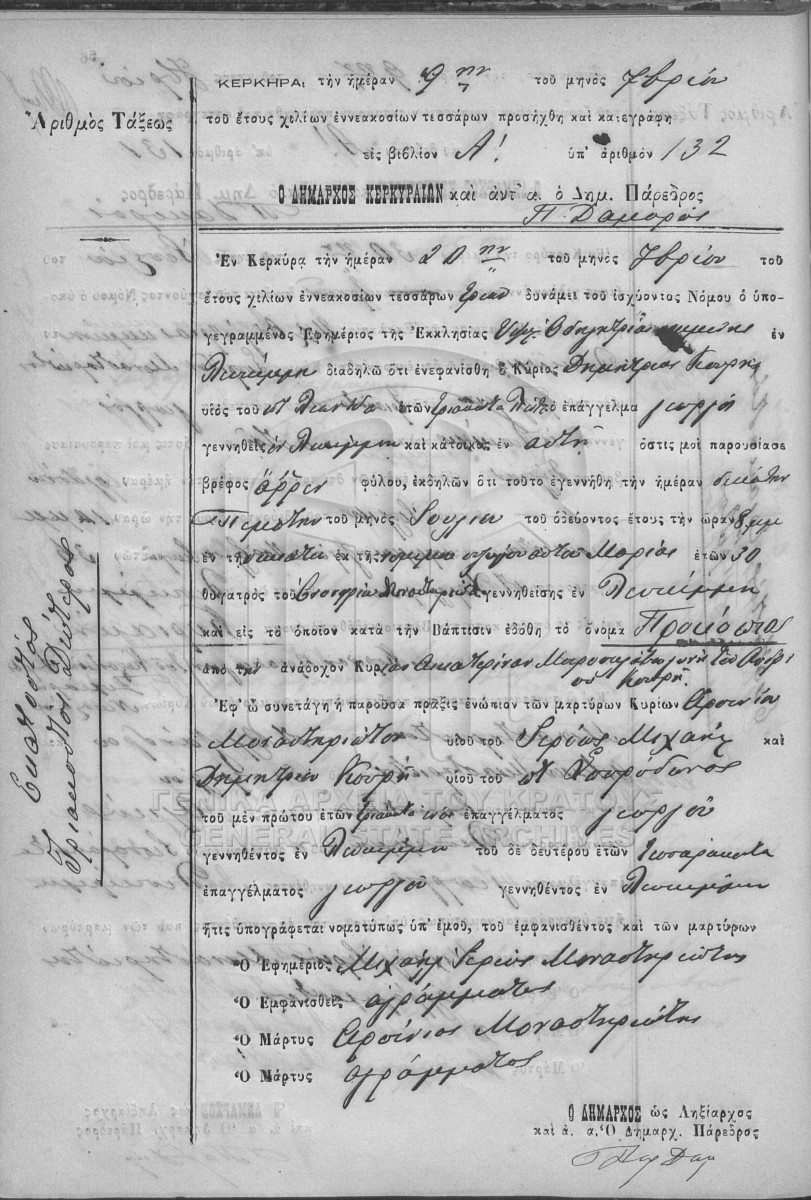 ΚΕΡΚΗΡΑι τὴν ἡμέραν 9 ην τοῦ μηνὸς 7βρίου
τοῦ ἔτους χιλίων ἐννεακοσίων τεσσάρων προσήχθη καὶ κατεγράφη
Ἀριθμὸς Τάξεως
εἰς βιβλίον Α! ὑπ' ἀριθμὸν 132
Ὁ ΔΗΜΑΡΧΟΣ ΚΕΡΚΥΡΑΙΩΝ καὶ ἀντ' α. ὁ Δημ. Πάρεδρος
Π. Δαμορός
Ἐν Κερκύρᾳ τὴν ἡμέραν 20 ην τοῦ μηνὸς 7βρίου τοῦ
ἔτους χιλίων ἐννεακοσίων τεσσάρων δυνάμει τοῦ ἰσχύοντος Νόμου ὁ ὑπο-
γεγραμμένος Ἐφημέριος τῆς Ἐκκλησίας Ὑπερ. Ὁδηγητρίας ἐν
Λευκίμμῃ διαδηλῶ ὅτι ἐνεφανίσθη ὁ Κύριος Δημήτριος Κουρῆς
υἱὸς τοῦ ἐτῶν τριάκοντα ἐπάγγελμα γεωργὸς
γεννηθεὶς ἐν Λευκίμμῃ καὶ κάτοικος ἐν αὐτῇ ὅστις μοι παρουσίασε
βρέφος ἄρρεν φύλου, ἐκδηλῶν ὅτι τοῦτο ἐγεννήθη τὴν ἡμέραν δεκάτην
πέμπτην τοῦ μηνὸς Ἰουλίου τοῦ ὁδεύοντος ἔτους τὴν ὥραν 8 μμ
ἐν τῇ οἰκίᾳ του ἐκ τῆς νομίμου συζύγου αὐτοῦ Μαρίας ἐτῶν 30
θυγατρὸς τοῦ Μοναστηριώτη γεννηθείσης ἐν Λευκίμμῃ
καὶ εἰς τὸ ὁποῖον κατὰ τὴν Βάπτισιν ἐδόθη τὸ ὄνομα Προκόπιος
ἀπὸ τὴν ἀνάδοχον Κυρίαν Αἰκατερίναν γυνὴ τοῦ
Κουρῆ
Ἐφ' ᾧ συνετάγη ἡ παροῦσα πρᾶξις ἐνώπιον τῶν μαρτύρων Κυρίων Ἀρσενίου
Μοναστηριώτου υἱοῦ τοῦ Ἱερέως Μιχαὴλ καὶ
Δημητρίου Κουρῆ υἱοῦ τοῦ Σπυρίδωνος
τοῦ μὲν πρώτου ἐτῶν τριάκοντα ἑνὸς ἐπαγγέλματος γεωργοῦ
γεννηθέντος ἐν Λευκίμμῃ τοῦ δὲ δευτέρου ἐτῶν τεσσαράκοντα
ἐπαγγέλματος γεωργοῦ γεννηθέντος ἐν Λευκίμμῃ
ἥτις ὑπογράφεται νομοτύπως ὑπ' ἐμοῦ, τοῦ ἐμφανισθέντος καὶ τῶν μαρτύρων
Ὁ Ἐφημέριος Μιχαὴλ Ἱερεὺς Μοναστηριώτης
Ὁ Ἐμφανισθεὶς ἀγράμματος
Ὁ Μάρτυς Ἀρσένιος Μοναστηριώτης
Ὁ Μάρτυς ἀγράμματος
Ὁ ΔΗΜΑΡΧΟΣ ὡς Ληξίαρχος
καὶ ἀ. α. Ὁ Δημαρχ. Πάρεδρος
Ἑκατοστὸς
Τριακοστὸς Δεύτερος
ΓΕΝΙΚΑ ΑΡΧΕΙΑ ΤΟΥ ΚΡΑΤΟΥΣ
GENERAL STATE ARCHIVES